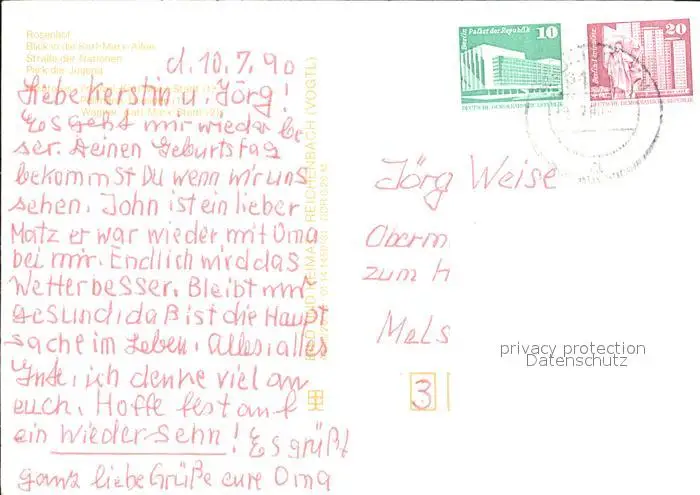 Rosenhof
Blick in die Karl-Marx-Allee
Straße der Nationen
Park der Jugend
d. 10.7.90
Liebe Kerstin u. Jörg!
Es geht mir wieder bes
ser. Deinen Geburtstag
bekommst Du wenn wir uns
sehen. John ist ein lieber
Matz er war wieder mit Oma
bei mir. Endlich wird das
Wetter besser. Bleibt mir
gesund, daß ist die Haupt
sache im Leben. Alles, alles
Gute, ich denke viel an
euch. Hoffe fest auf
ein Wiedersehn! Es grüßt
ganz liebe Grüße eure Oma
BILD UND HEIMAT REICHENBACH (VOGTL)
Berlin, Palast der Republik
10
DEUTSCHE DEMOKRATISCHE REPUBLIK
20
DEUTSCHE DEMOKRATISCHE REPUBLIK
Jörg Weise
Oberm
zum H
Mels
3
privacy protection
Datenschutz